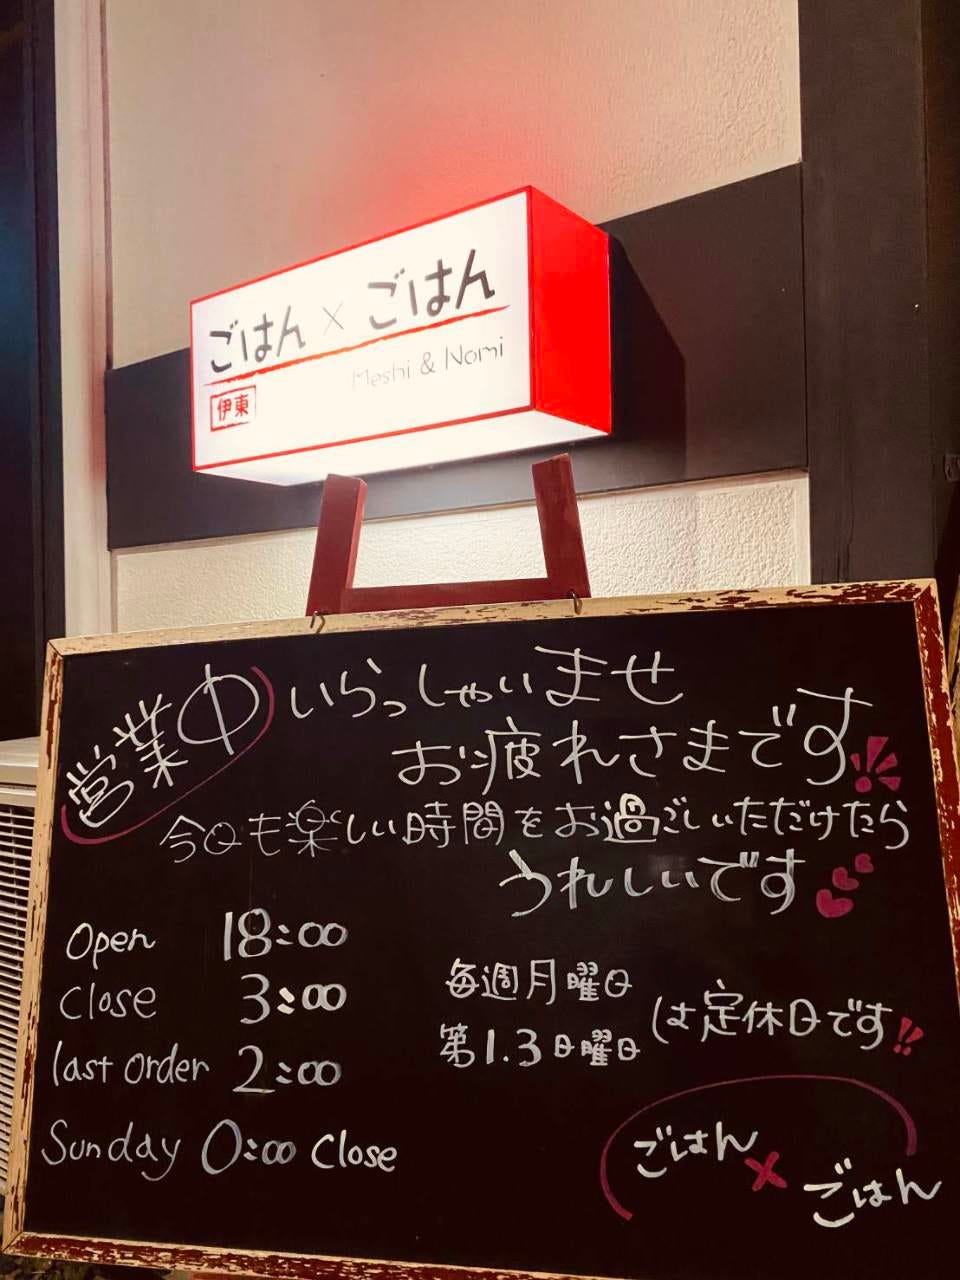 ごはん×ごはん
Meshi & Nomi
伊東
営業中
いらっしゃいませ
お疲れさまです!!
今日も楽しい時間をお過ごしいただけたら
うれしいです
Open 18:00
Close 3:00
last order 2:00
Sunday 0:00 Close
毎週月曜日
第1.3日曜日
は定休日です!!
ごはん×ごはん